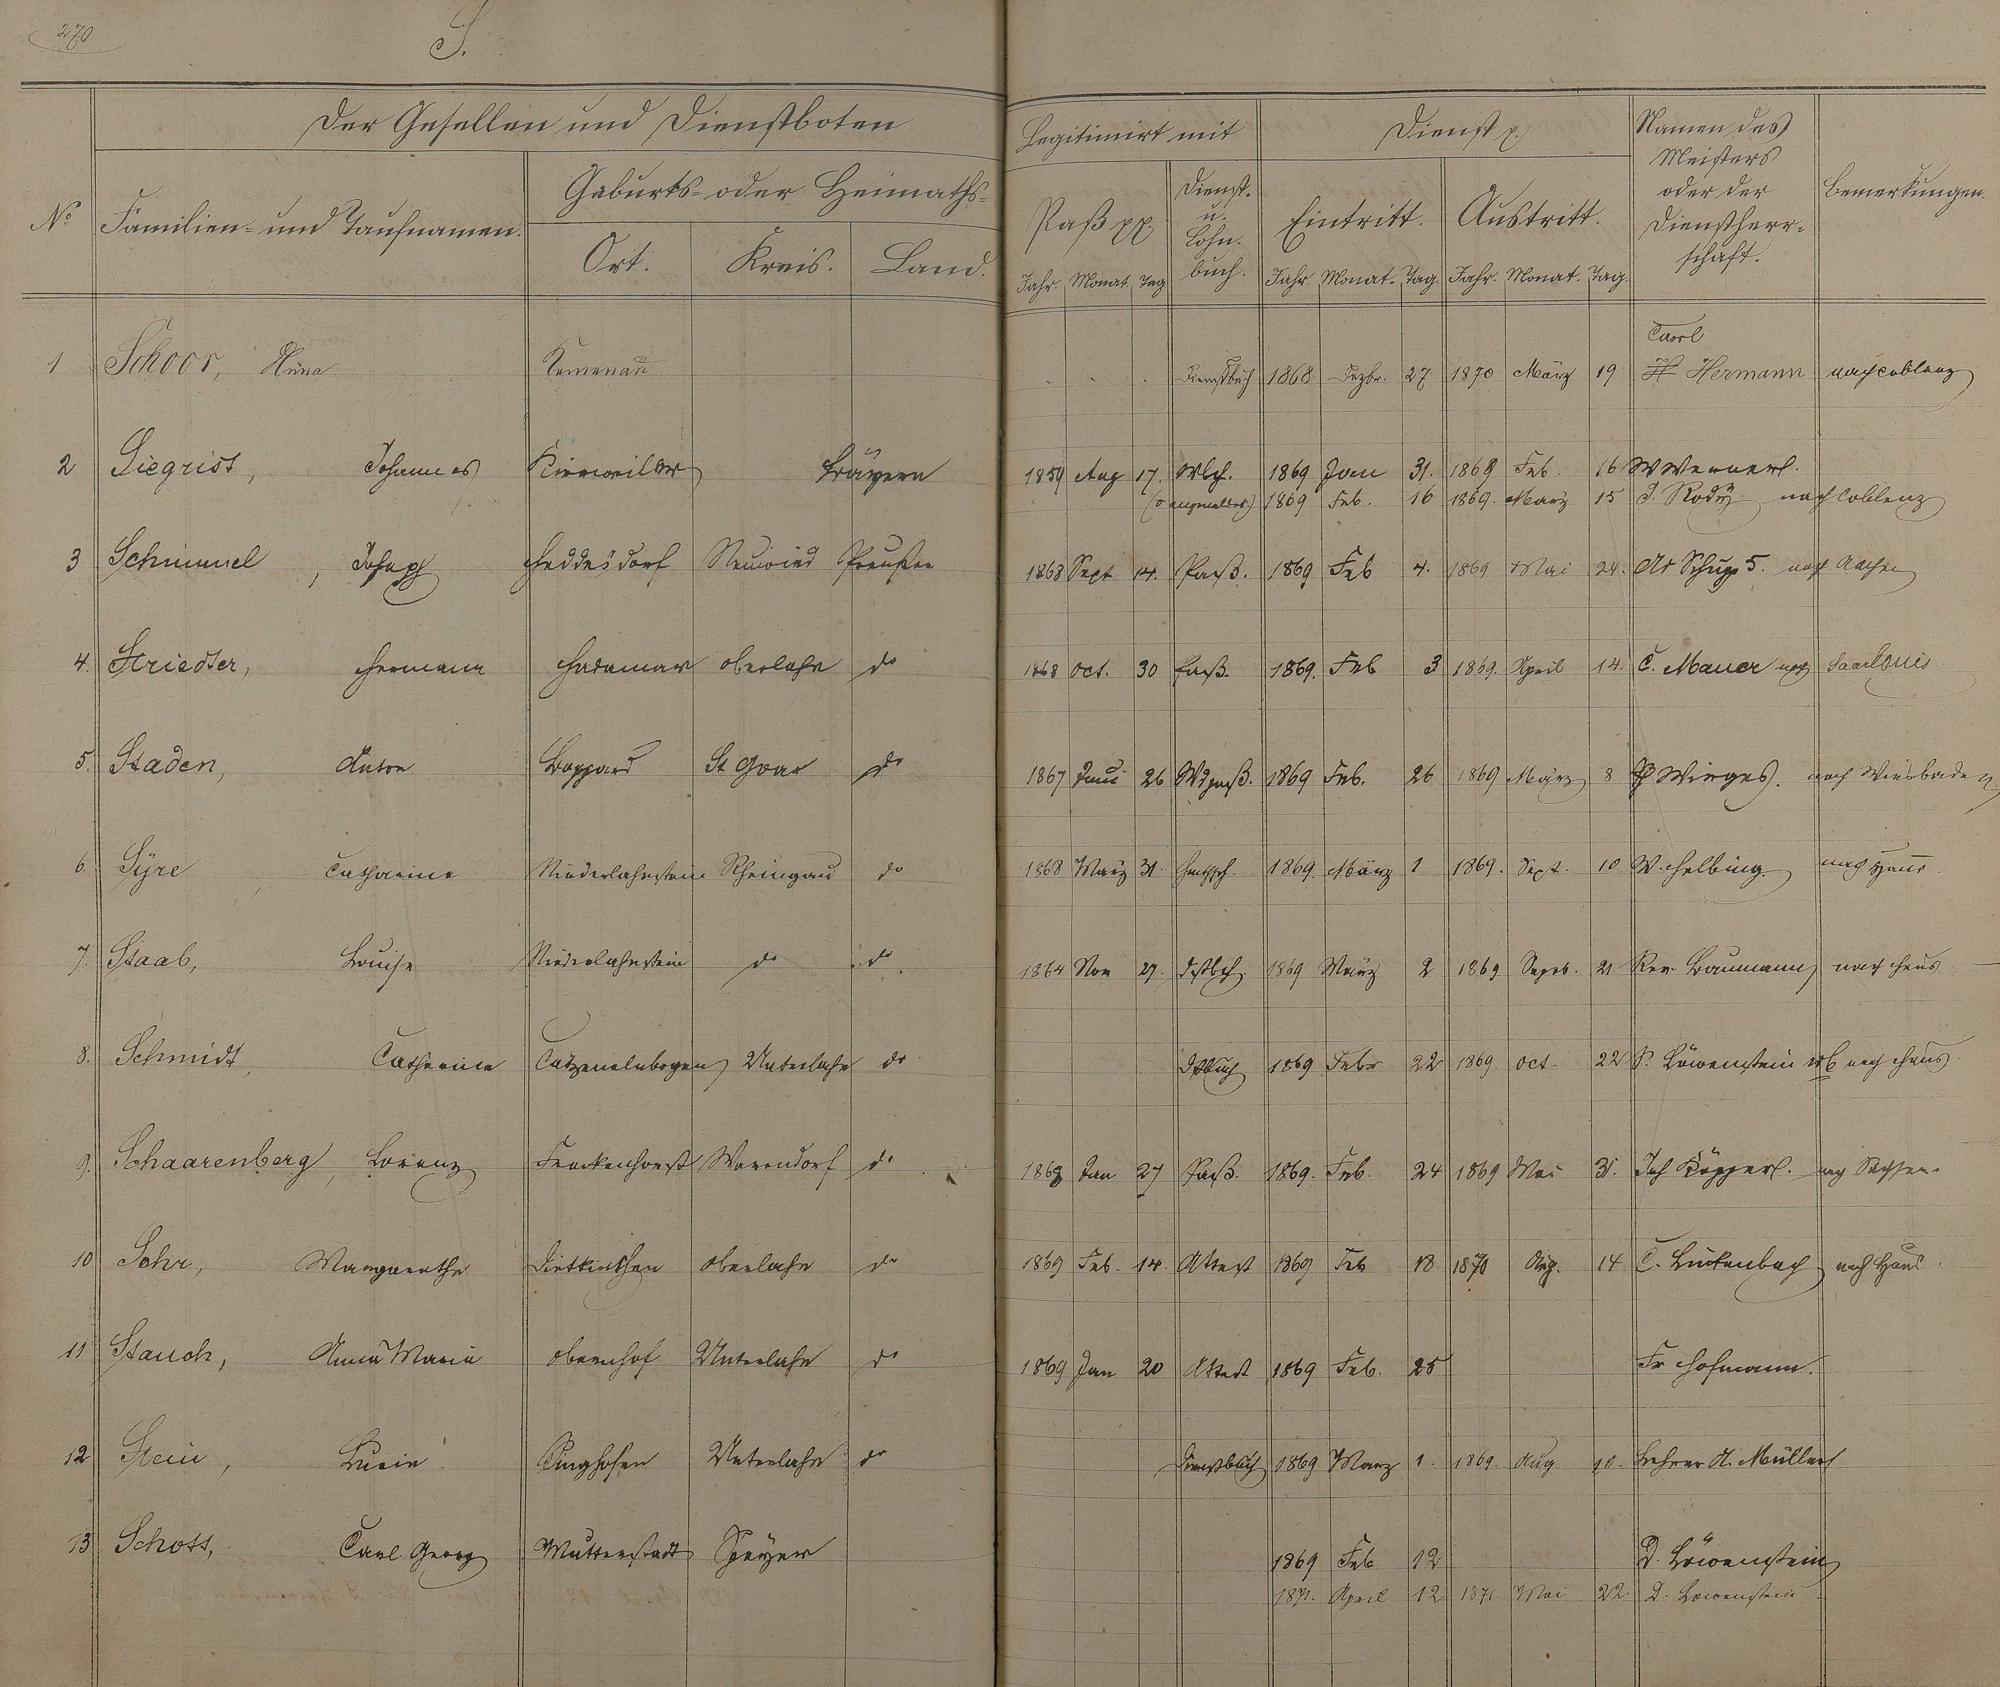 270
S.
Der Gesellen und Dienstboten
Legitimirt mit
Dienst p.
Namen des Meisters oder der Dienstherr-schaft.
Bemerkungen.
No
Familien- und Taufnamen.
Geburts- oder Heimaths-
Ort. Kreis. Land.
Paß pp.
Dienst- u. Lohn-buch.
Eintritt. Austritt.
Jahr. Monat Tag Jahr. Monat. Tag. Jahr. Monat. Tag.
Carl
1 Schoor, Anna Kemenau Dienstbuch 1868 Dezbr. 27 1870 März 19 Hermann nach Coblenz
2 Siegrist, Johannes Kirrweiler Bayern 1859 Aug 17. Wbch. 1869 Jan 31. 1869 Feb. 16 W Werner.
1869 Feb. 16 1869. März 15 J. Rody nach Coblenz
3 Schimmel, Joseph Heddesdorf Neuwied Preußen 1868 Sept 14. Paß. 1869 Feb 4. 1869 Mai 24. Schupp nach Aachen
4. Striedter, Hermann Hadamar Oberlahn do 1868 Oct. 30 Paß. 1869. Feb 3 1869. April 14. C. Mauer nach Saarlouis
5. Staden, Anton Boppard St Goar do 1867 Juni 26 1869 Feb. 26 1869 März 8 Wirges. nach Wiesbaden
6. Syre, Catharine Niederlahnstein Rheingau do 1868 März 31. 1869. März 1 1869. Sept. 10 W. Helbing. nach Haus
7. Staab, Louise Niederlahnstein do do 1864 Nov 27. Dstbch. 1869 März 2 1869 Septb. 21 Rev. Baumann, nach Haus
8. Schmidt, Catharine Catzenelnbogen Unterlahn do Dstbuch 1869 Febr 22 1869. Oct. 22 S. Löwenstein nach Haus
9. Schaarenberg, Lorenz Freckenhorst Warendorf do 1868 Jan 27 Paß. 1869. Feb. 24 1869 Mai 31. Joh Köpper. nach Sachsen.
10 Sohr, Margarethe Dietkirchen Oberlahn do 1869 Feb. 14. Attest 1869 Feb 18 1870 Aug. 14 C. Lückenbach nach Haus.
11 Stauch, Anna Maria Obernhof Unterlahn do 1869 Jan 20 Attest 1869 Feb. 25 Fr Hofmann.
12 Stein, Lucie Singhofen Unterlahn do Dienstbuch 1869 März 1. 1869. Aug 10. Lehrer H. Müller
13 Schott, Carl Georg Mutterstadt Speyer 1869 Feb 12 D. Löwenstein
1871. April 12 1871. Mai 22 D. Löwenstein